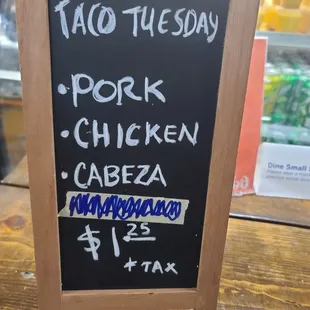 TACO TUESDAY
• PORK
• CHICKEN
• CABEZA
$1.25
+ TAX
Dine Small